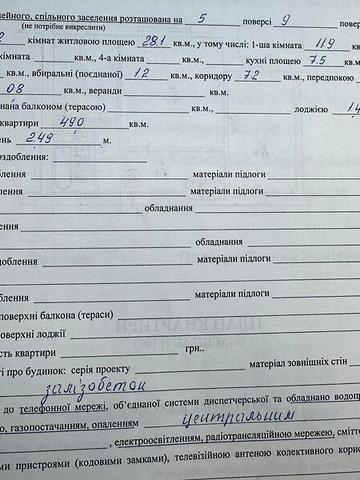 нейного, спільного заселення розташована на 5 поверсі 9 повер
(не потрібне викреслити)
2 кімнат житловою площею 28.1 кв.м., у тому числі: 1-ша кімната 11,9 кв
кімната кв.м., 4-а кімната кв.м., кухні площею 7.5 кв.
кв.м., вбиральні (поєднаної) 1.2 кв.м., коридору 7.2 кв.м., передпокою
08 кв.м., веранди кв.м.
нана балконом (терасою) лоджією 1.4
квартири 49.0 кв.м.
ень 2.49 м.
оздоблення:
блення матеріали підлоги
блення матеріали підлоги
обладнання
ення
обладнання
оздоблення матеріали підлоги
блення матеріали підлоги
поверхні балкона (тераси)
поверхні лоджії
ість квартири грн..
ті про будинок: серія проекту матеріал зовнішніх стін
залізобетон
до телефонної мережі, об'єднаної системи диспетчерської та обладнано водопр
о, газопостачанням, опаленням центральним
, електроосвітленням, радіотрансляційною мережею, смітт
ими пристроями (кодовими замками), телевізійною антеною колективного корис